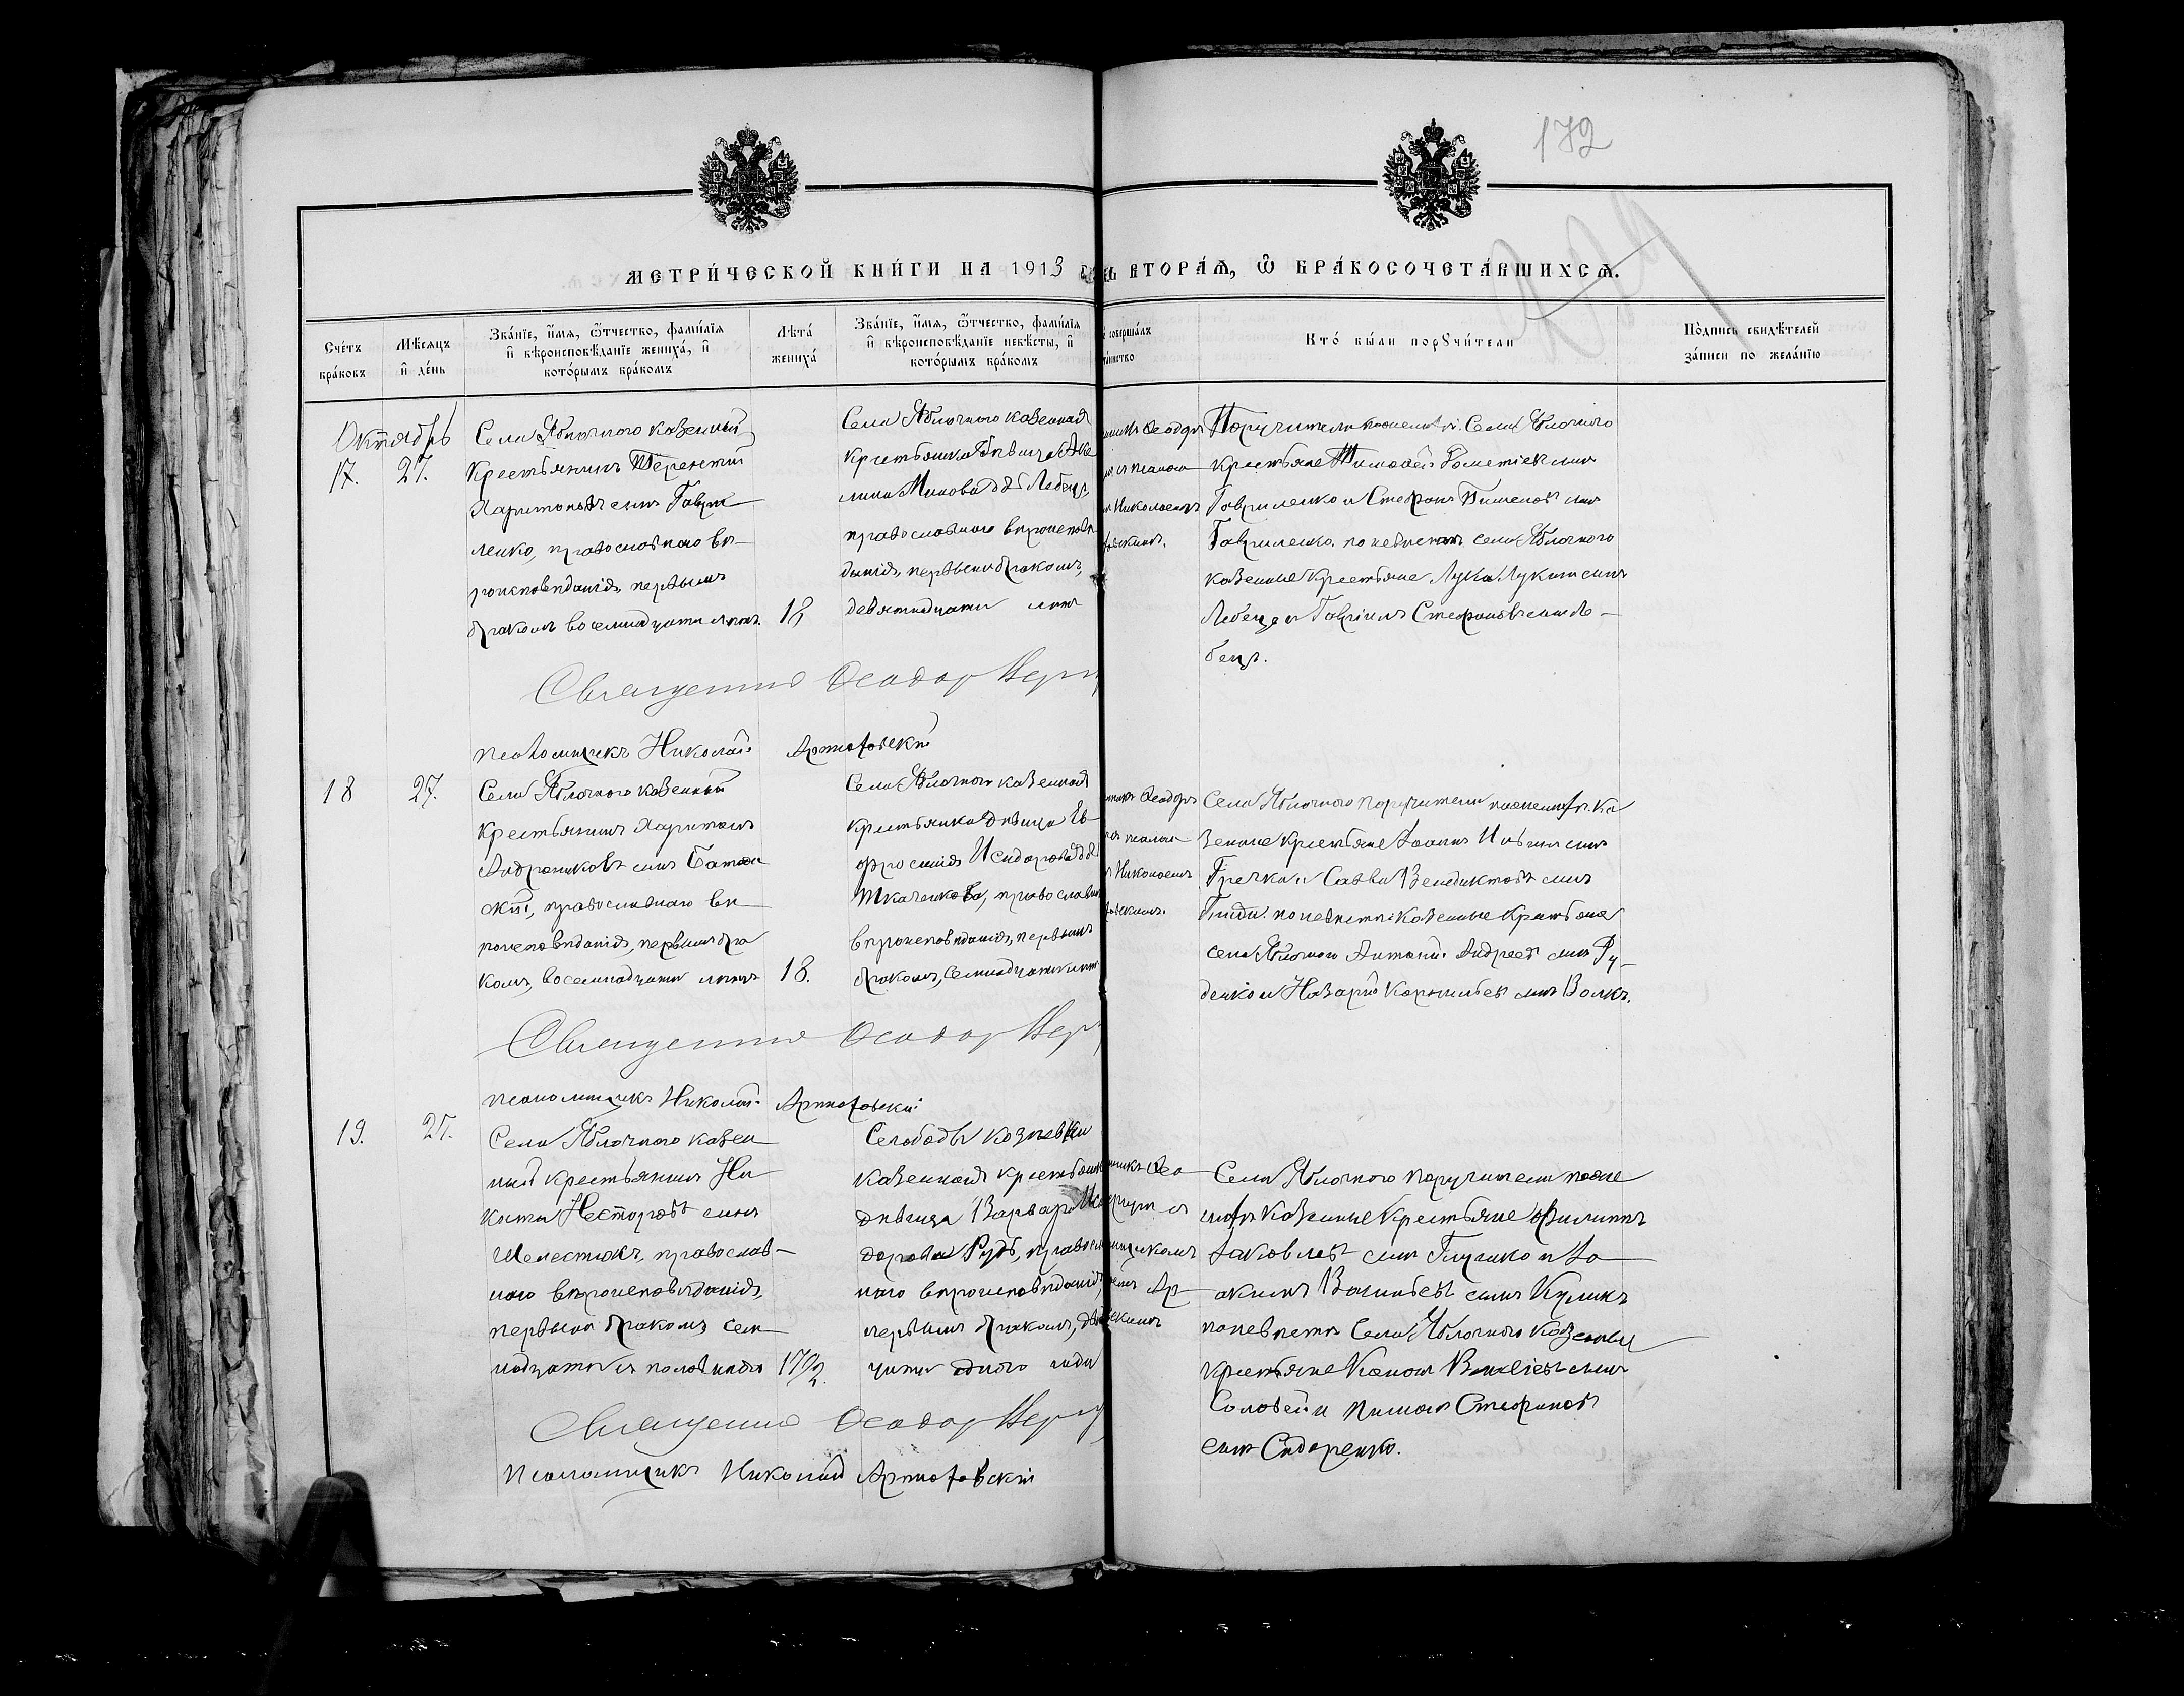 172
МЕТРИ́ЧЕСКОЙ КНИ́ГИ НА 1913 ВТОРА́Ѧ, Ѡ БРА́КОСОЧЕТА́ВШИХСѦ.
Сче́тъ бра́ковъ
Мѣ́сѧцъ и҆ де́нь
Зва́нїе, и҆́мѧ, ѻ҆́тчество, фами́лїѧ
и҆ вѣроисповѣ́данїе жениха́, и҆
кото́рымъ бра́комъ
Лѣта́ жениха́
Зва́нїе, и҆́мѧ, ѻ҆́тчество, фами́лїѧ
и҆ вѣроисповѣ́данїе невѣ́сты, и҆
кото́рымъ бра́комъ
соверша́лъ
Кто́ бы́ли порꙋчи́тели
По́дпись свидѣ́телей
за́писи по жела́нїю
Октябрь
17. 27.
Села Яблочного казенный
крестьянинъ Терентій
Харитоновъ сынъ Гаври
ленко, православнаго вѣ
роисповѣданія, первымъ
бракомъ восемнадцати лѣтъ.
18
Села Яблочного казенная
крестьянка дѣвица
Минова Лебец
православнаго вѣроисповѣ
данія, первымъ бракомъ,
девятнадцати лѣтъ
Ѳеодор
и псалом
Николаемъ
Поручители по женихѣ: Села Яблочного
крестьяне Тимофей сынъ
Гавриленко и Стефанъ сынъ
Гавриленко. по невѣстѣ села Яблочного
казенные крестьяне Лука Лукинъ сынъ
Лебец и Гавріилъ Стефановъ сынъ Ле
бец.
Священникъ Ѳеодор
Псаломщикъ Николай Артюховскій
18 27.
Села Яблочного казенный
крестьянинъ Харитонъ
Андрониковъ сынъ
скій, православнаго вѣ
роисповѣданія, первымъ бра
комъ, восемнадцати лѣтъ
18.
Села Яблочного казенная
крестьянка дѣвица Ев
фросинія Исидорова
Ткаченкова, православн
вѣроисповѣданія, первымъ
бракомъ, семнадцати лѣтъ
Ѳеодор
псалом
Николаемъ
Села Яблочного поручители по женихѣ: Ка
зенные крестьяне Іоаннъ сынъ
Гречка и Савва Венедиктовъ сынъ
по невѣстѣ: Казенные крестьяне
села Яблочного Антоній Андреевъ сынъ Ру
денко и Назарій Корнильевъ сынъ Волкъ.
Священникъ Ѳеодор
Псаломщикъ Николай Артюховскій
19. 27.
Села Яблочного казен
ный крестьянинъ Ни
кита Несторовъ сынъ
Шелестюкъ, православ
наго вѣроисповѣданія,
первымъ бракомъ, сем
надцати съ половиною
17½.
Слободы Козѣевки
казенная крестьянк
дѣвица Варвара Иси
дорова Рудь, правосл
наго вѣроисповѣданія,
первымъ бракомъ, два
цати одного года
Ѳео
Ар
Села Яблочного поручители по же
нихѣ казенные крестьяне Филиппъ
Іаковлевъ сынъ Глушко и Іо
акимъ Васильевъ сынъ Куликъ
по невѣстѣ Села Яблочного казенные
крестьяне Кононъ сынъ
Соловей и Стефановъ
сынъ Сидоренко.
Священникъ Ѳеодор
Псаломщикъ Николай Артюховскій